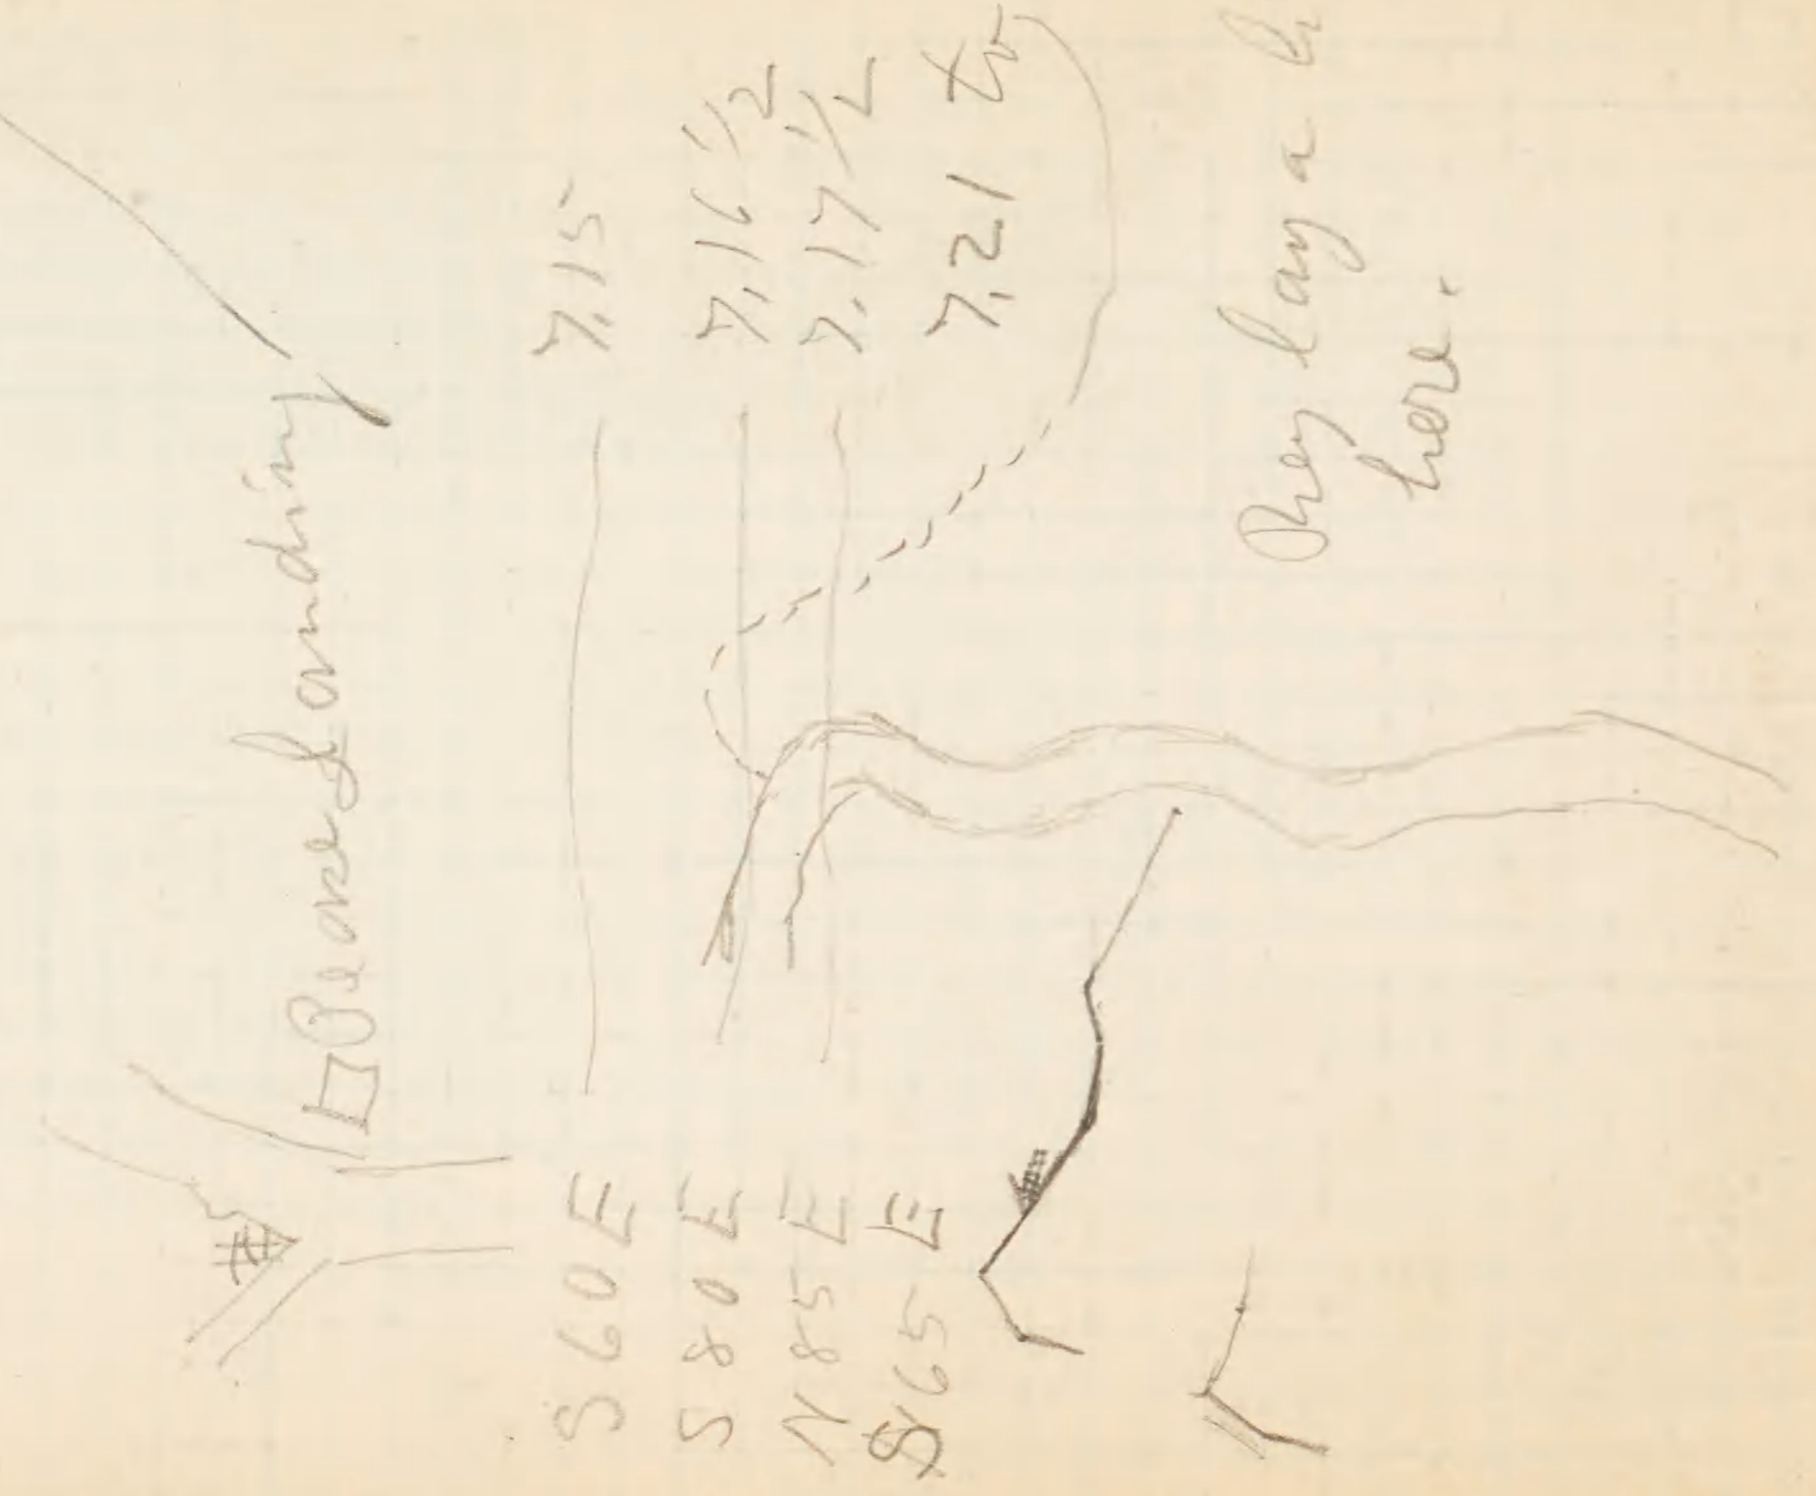 Peare Landing
S 60 E 7.15
S 80 E 7.16 1/2
N 85 E 7.17 1/2
S 65 E 7.21 to
They lay a
here.